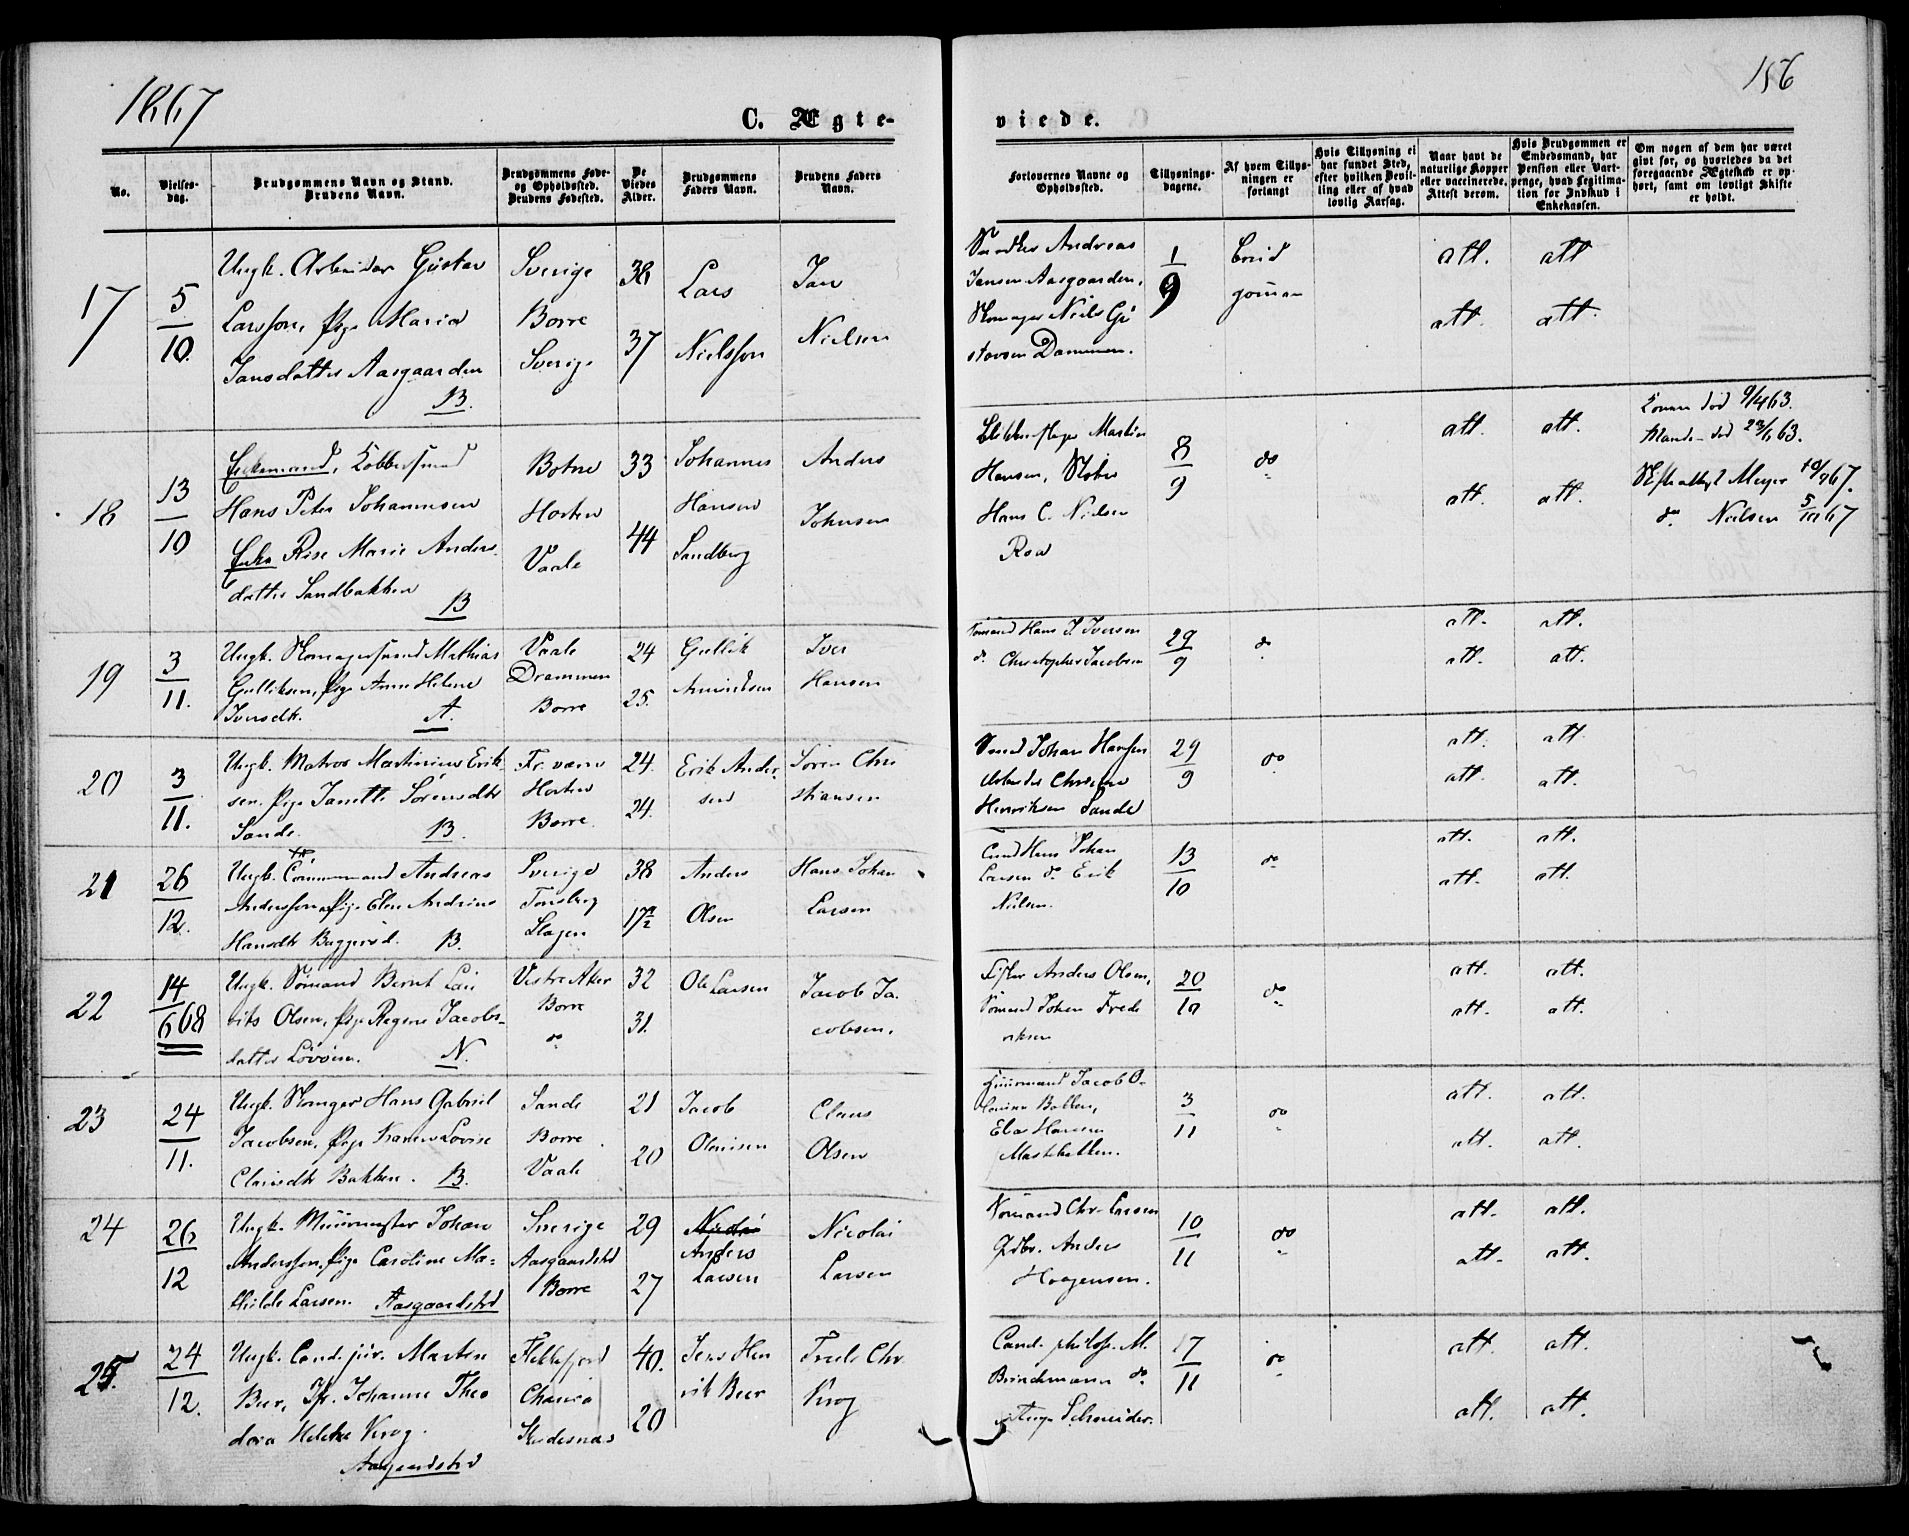 1867
156
C. Ægte-
viede.
No.
Vielses-dag.
Brudgommens Navn og Stand.
Brudens Navn.
Brudgommens Føde- og Opholdssted.
Brudens Fødested.
De Viedes Alder.
Brudgommens Faders Navn.
Brudens Faders Navn.
Forlovernes Navne og Opholdssted.
Tillysnings-dagene.
Af hvem Tillys-ningen er forlangt
Hvis Tillysning ei har fundet Sted, efter hvilken Bevil-ling eller af hvad lovlig Aarsag.
Naar havt de naturlige Kopper eller vaccinerede. Attest derom.
Hvis Brudgommen er Embedsmand, har Pension eller Vart-penge, hvad Legitima-tion for Indskud i Enkekassen.
Om nogen af dem har været gift før, og hvorledes da det foregaaende Ægteskab er op-hørt, samt om lovligt Skifte er holdt.
17
5/10.
Ungk. Arbeider Gustav
Larsson, Pige Maria
Jansdatter Aasgaarden
B.
Sverige
Borre
Sverige
38
37
Lars
Nielsson
Jan
Nielsen
Andreas
Jansen Aasgaarden,
Skomager Niels Gu
stavsen Dammen.
1/9
Brud
gommen
att. att
att. att.
18
13/10
Enkemand, Kobbersmed
Hans Peter Johannesen
Enke Rise Marie Anders-
datter Sandbakken
B
Botne
Horten
Vaale
33
44
Johannes
Hansen
Sandberg
Anders
Johnsen
Blikkenslager Martin
Hansen, Støber
Hans C. Nielsen
Roa
8/9
do
att. att.
att. att.
Konen død 9/4 63.
Manden død 23/1 63.
Skifteattest Meyer 10/9 67.
do Nielsen 5/10 67
19
3/11.
Ungk. Skomagersvend Mathias
Gulliksen, Pige Anne Helene
Iversdtr. A.
Vaale
Drammen
Borre
24
25.
Gullik
Amundsen
Iver
Hansen
Sømand Hans J. Iversen
do Christopher Jacobsen
29/9
do
att. att.
att. att.
20
3/11.
Ungk. Matros Martinius Erik-
sen. Pige Janette Sørensdtr
Sande. B.
Fr. værn
Horten
Borre.
24.
24.
Erik Ander-
sen
Søren Chri
stiansen
Svend Johan Hansen
Arbeider Christian
Henriksen Sande
29/9
do
att. att.
att. att.
21
26/12.
Ungk. Tømmermand Andreas
Andersson, Pige Elen Andrine
Hansdtr Baggerød. B.
Sverige
Tønsberg
Slagen
38
17½
Anders
Olsen
Hans Johan
Larsen
Hans Johan
Larsen do Erik
Nielsen.
13/10
do
att. att.
att. att.
22
14/6 68
Ungk. Sømand Bernt Lau
rits Olsen, Pige Regine Jacobs-
datter Løvøen. N.
Vestre Aker
Borre
do
32
31.
Ole Larsen
Jacob Ja-
cobsen.
Fisker Anders Olsen,
Sømand Johan Frede
riksen
20/10
do
att. att.
att. att.
23
24/11.
Ungk. Skomager Hans Gabriel
Jacobsen, Pige Karen Lovise
Clausdtr Bakken. B.
Sande
Borre.
Vaale
21
20
Jacob
Olausen
Claus
Olsen
Huusmand Jacob O-
lausen Bakken,
Elias Hansen
Mastebakken.
3/11
do
att. att.
att. att.
24
26/12
Ungk. Muurmester Johan
Andersson, Pige Caroline Ma-
thilde Larsen. Aasgaardstrd
Sverige
Aasgaardstrd
Borre
29
27
Nicolai
Anders
Larsen
Nicolai
Larsen
Sømand Chr. Larsen
Gdbr. Anders
Haagensen.
10/11
do
att. att.
att. att.
25.
24/12.
Ungk. Cand. jur. Morten
Beer, Jfr. Johanne Theo
dora Krog.
Aasgaardstrd
Flekkefjord
Skudesnæs
40.
20
Jens Hen
rik Beer
Fredr. Chr.
Krog
Cand. philos. M.
Brinchmann do
Schneider.
17/11
do
att. att.
att. att.